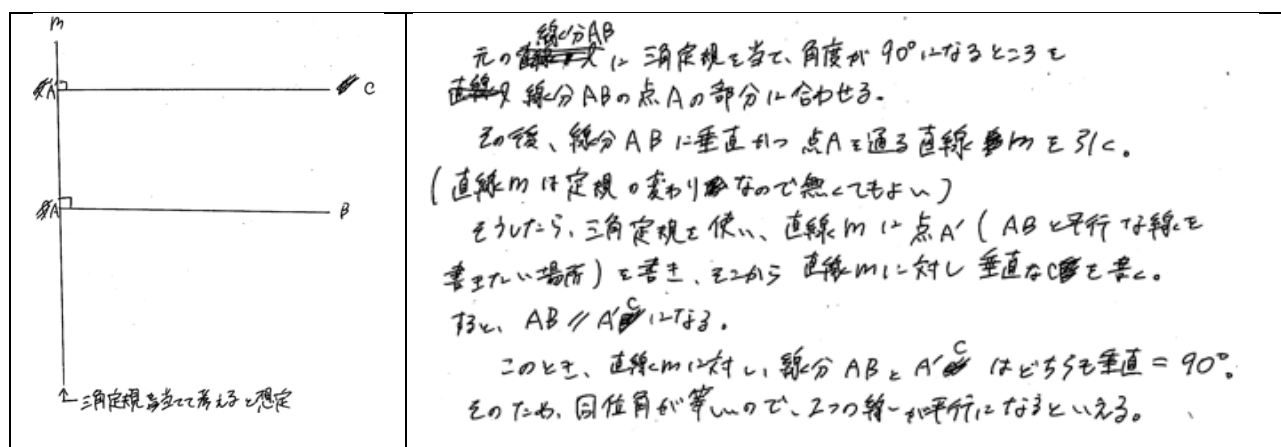 m
A'
C
A
B
↑三角定規を当てて考えると想定
元の線分ABに三角定規を当て、角度が90°になるところを
線分ABの点Aの部分に合わせる。
その後、線分ABに垂直かつ点Aを通る直線mを引く。
(直線mは定規の変わりなので無くてもよい)
そうしたら、三角定規を使い、直線mに点A'(ABと平行な線を
書きたい場所)を書き、そこから直線mに対し垂直なCを書く。
すると、AB∥A'Cになる。
このとき、直線mに対し、線分ABとA'Cはどちらも垂直=90°。
そのため、同位角が等しいので、2つの線が平行になるといえる。